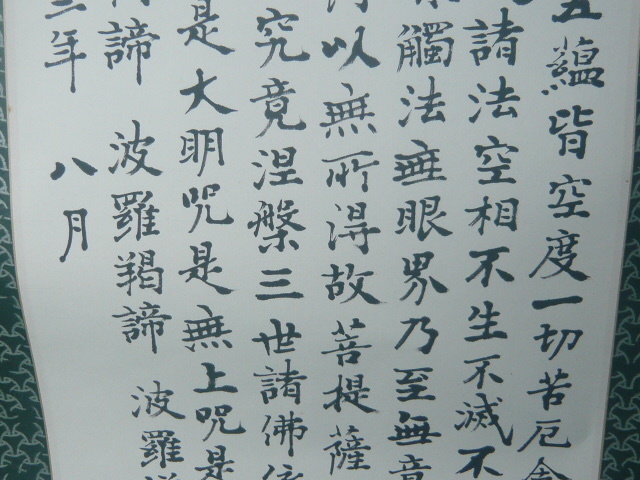 五蘊皆空度一切苦厄舍
諸法空相不生不滅不
觸法無眼界乃至無意
以無所得故菩提薩
究竟涅槃三世諸佛依
是大明咒是無上咒是
諦 波羅羯諦 波羅
年 八月